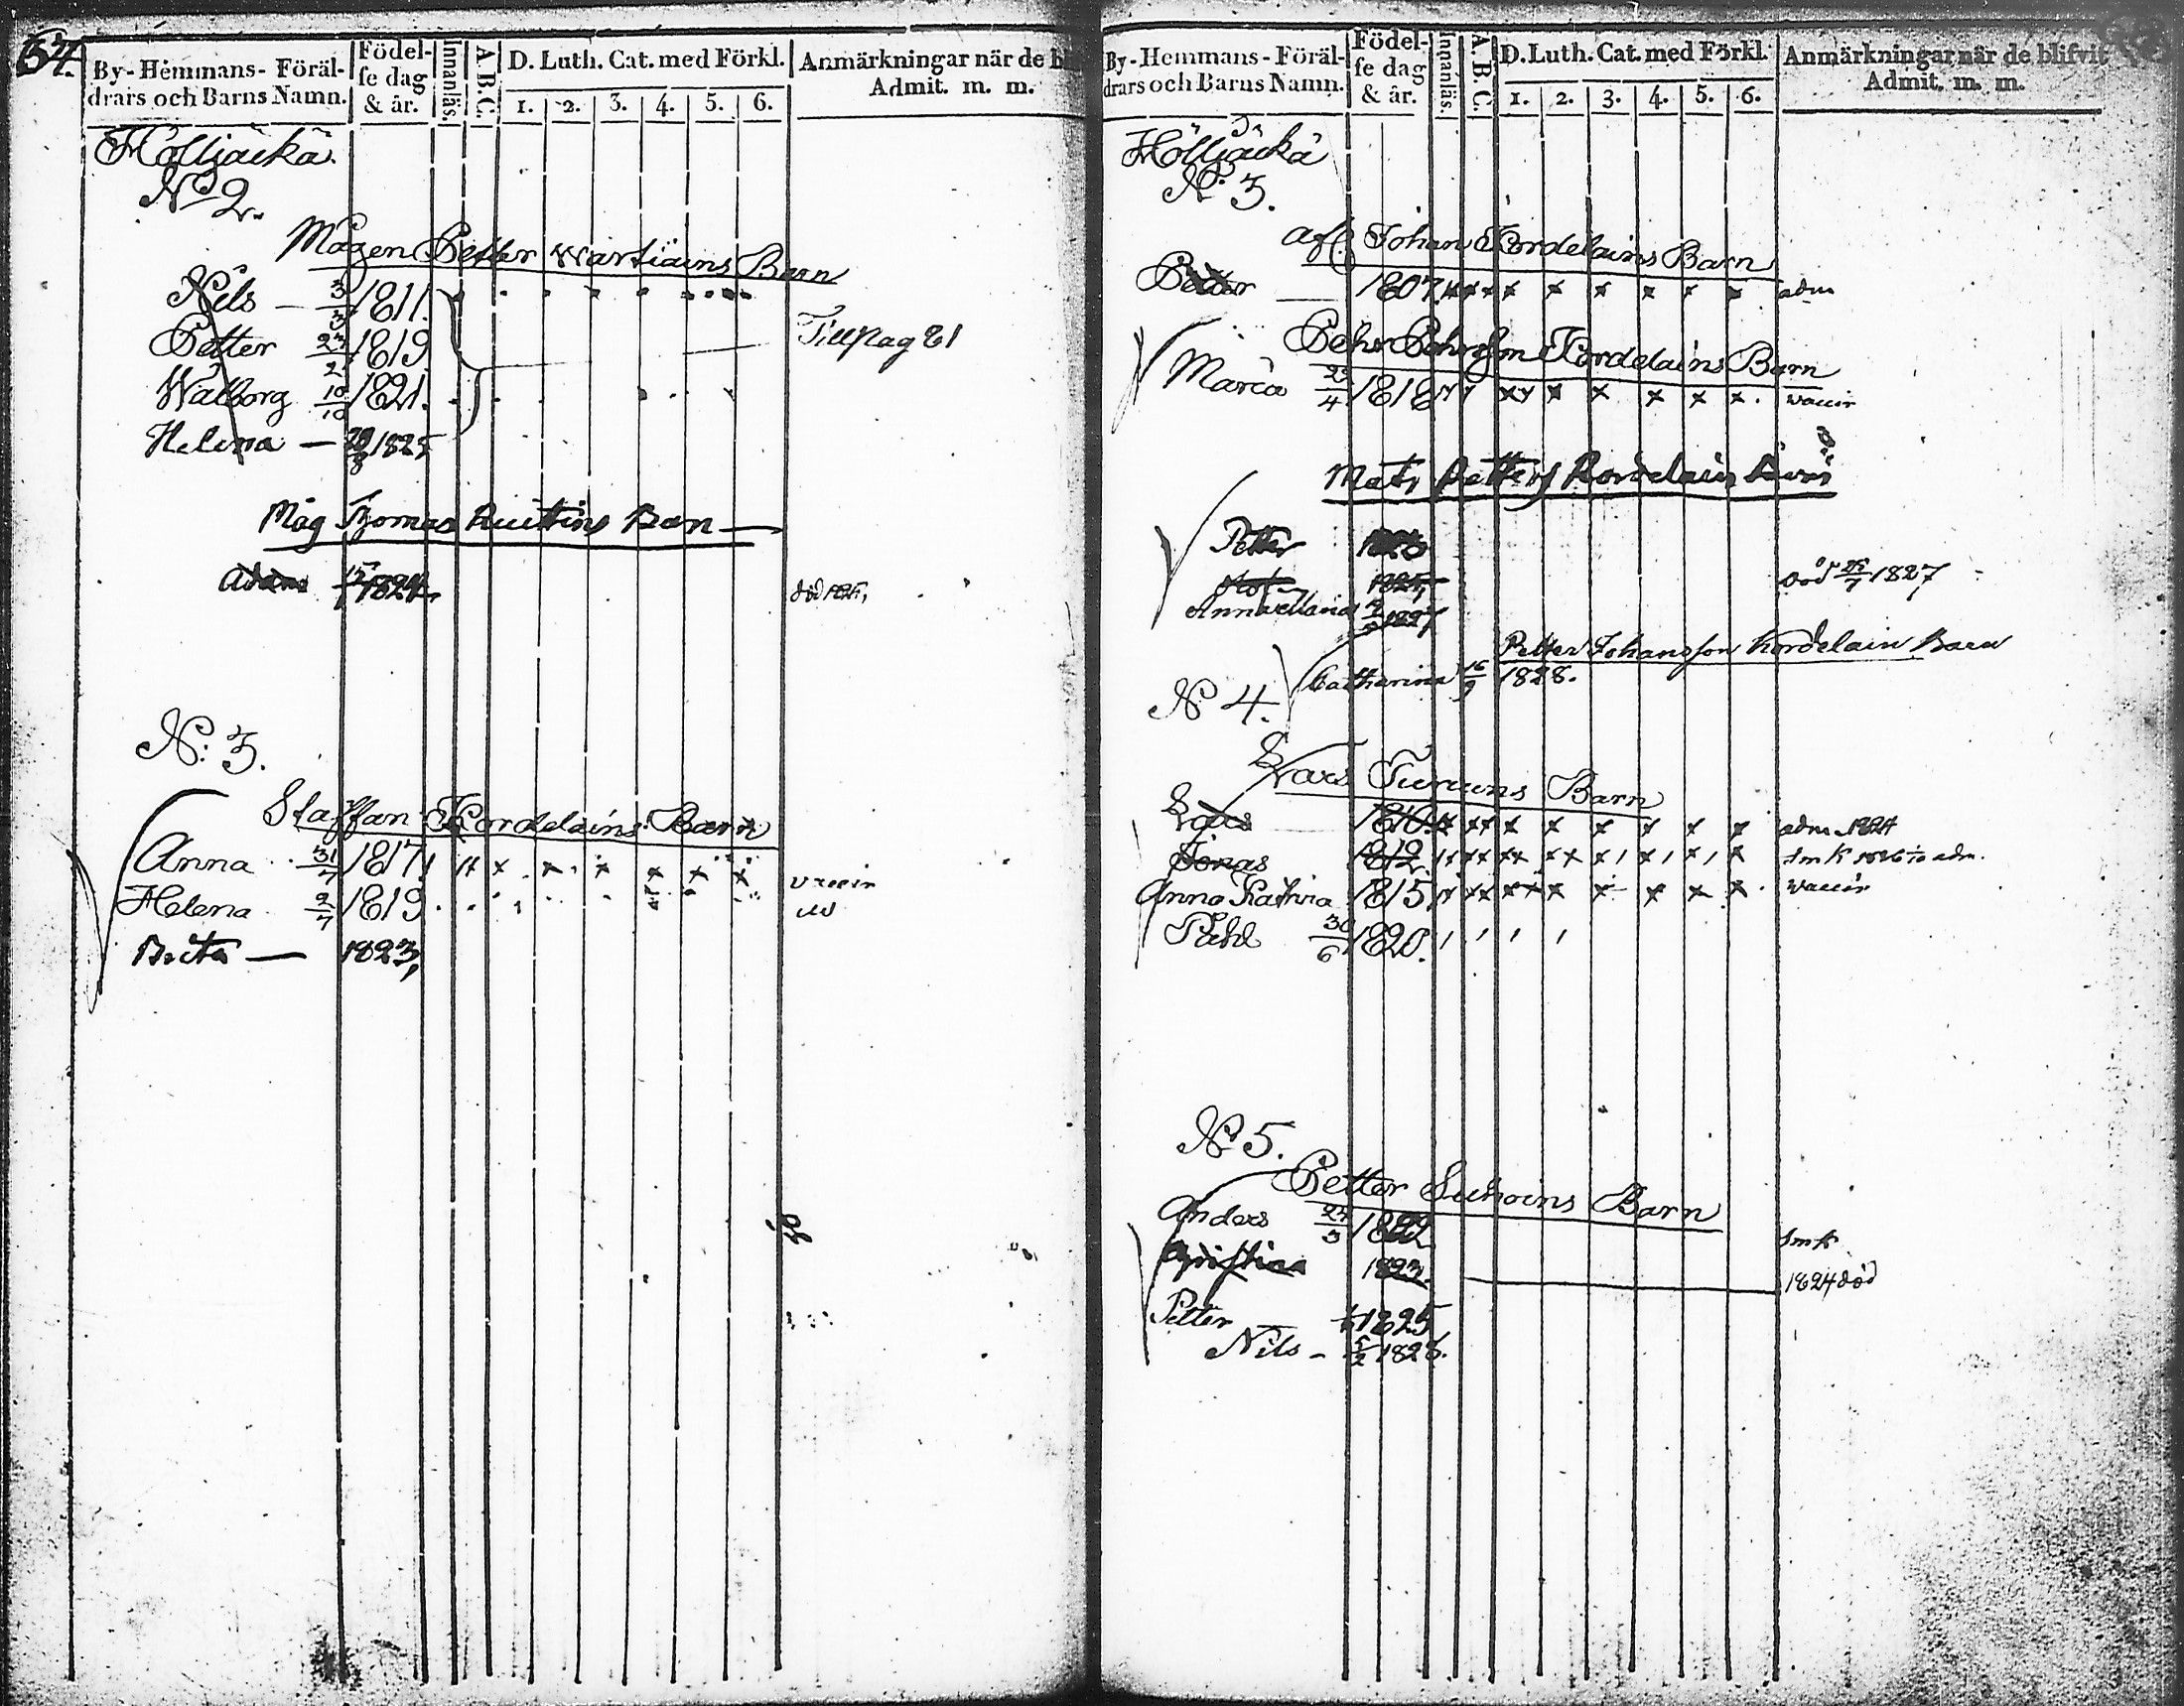 54.
By-Hemmans-Föräl-
drars och Barns Namn.
Födel-
se dag
& år.
Innanläs.
A.B.C.
D. Luth. Cat. med Förkl.
1. 2. 3. 4. 5. 6.
Anmärkningar när de bl
Admit. m. m.
Hölljäckä
No 2.
Mågen Petter Wartiains Barn
Nils — 3/3 1811.
Petter 23/2 1819 Till pag 81
Walborg 10/10 1821.
Helena — 1825
Måg Thomas Ruittins Barn —
Adam 15 1824 död 1825,
No: 3.
Staffan Kordelains Barn
Anna 31/7 1817 vaccin
Helena 2/7 1819
Brita — 1823,
By-Hemmans-Föräl-
drars och Barns Namn.
Födel-
se dag
& år.
Innanläs.
A.B.C.
D. Luth. Cat. med Förkl.
1. 2. 3. 4. 5. 6.
Anmärkningar när de blifvit
Admit. m. m.
Hölljäckä
No. 3.
afl. Johan Kordelains Barn
Petter — 1807 x x x x x x adm
Pehr Pehrsson Kordelains Barn
Maria 4 1818 x x x x x x vaccin
Mats Petters Kordelain Barn
Petter
1825, död 25/7 1827
Anna Maria 1827
Petter Johansson Kordelain Barn
Catharina 16/9 1828.
No 4.
Lars Turuins Barn
Lars 1810 x x x x x x adm 1824
Jonas 1812 adm.
Anna Kathrina 1815 x x x x x x vaccin
Påhl 30/6 1820.
No 5.
Petter Suhoins Barn
Anders 24/3 1822 smk
Christina 1823 1824 död
Petter 1825
Nils — 5/2 1828.